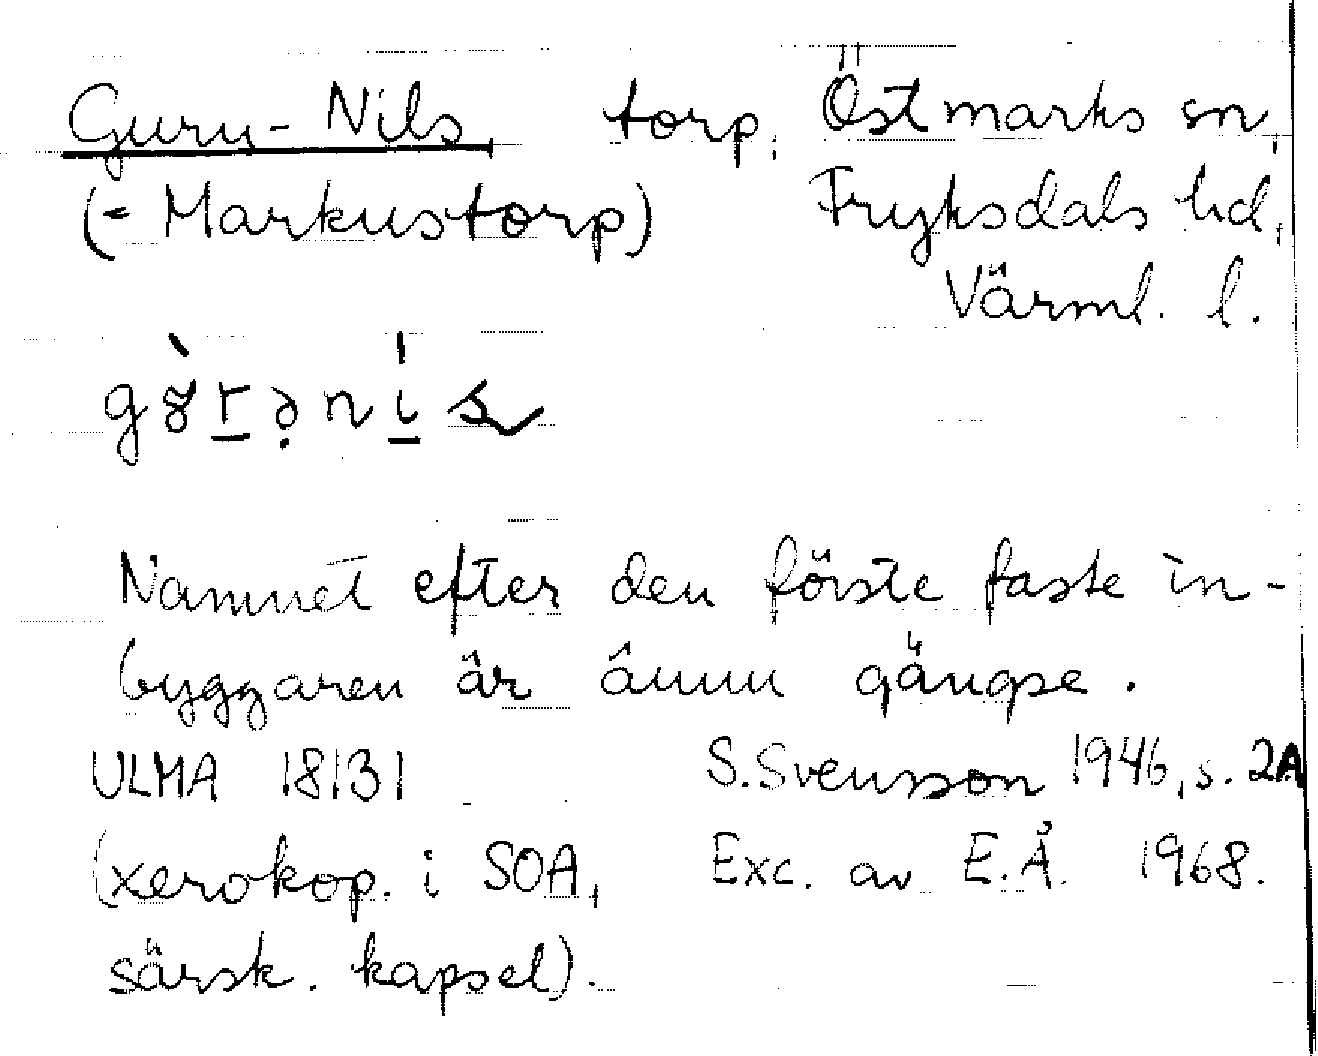 Guru-Nils, torp, Östmarks sn,
(= Markustorp) Fryksdals hd,
Värml. l.
Namnet efter den förste faste in-
byggaren är ännu gängse.
ULMA 18131 S. Svensson 1946, s. 2A
(xerokop. i SOA, Exc. av E.Å. 1968.
särsk. kapsel).